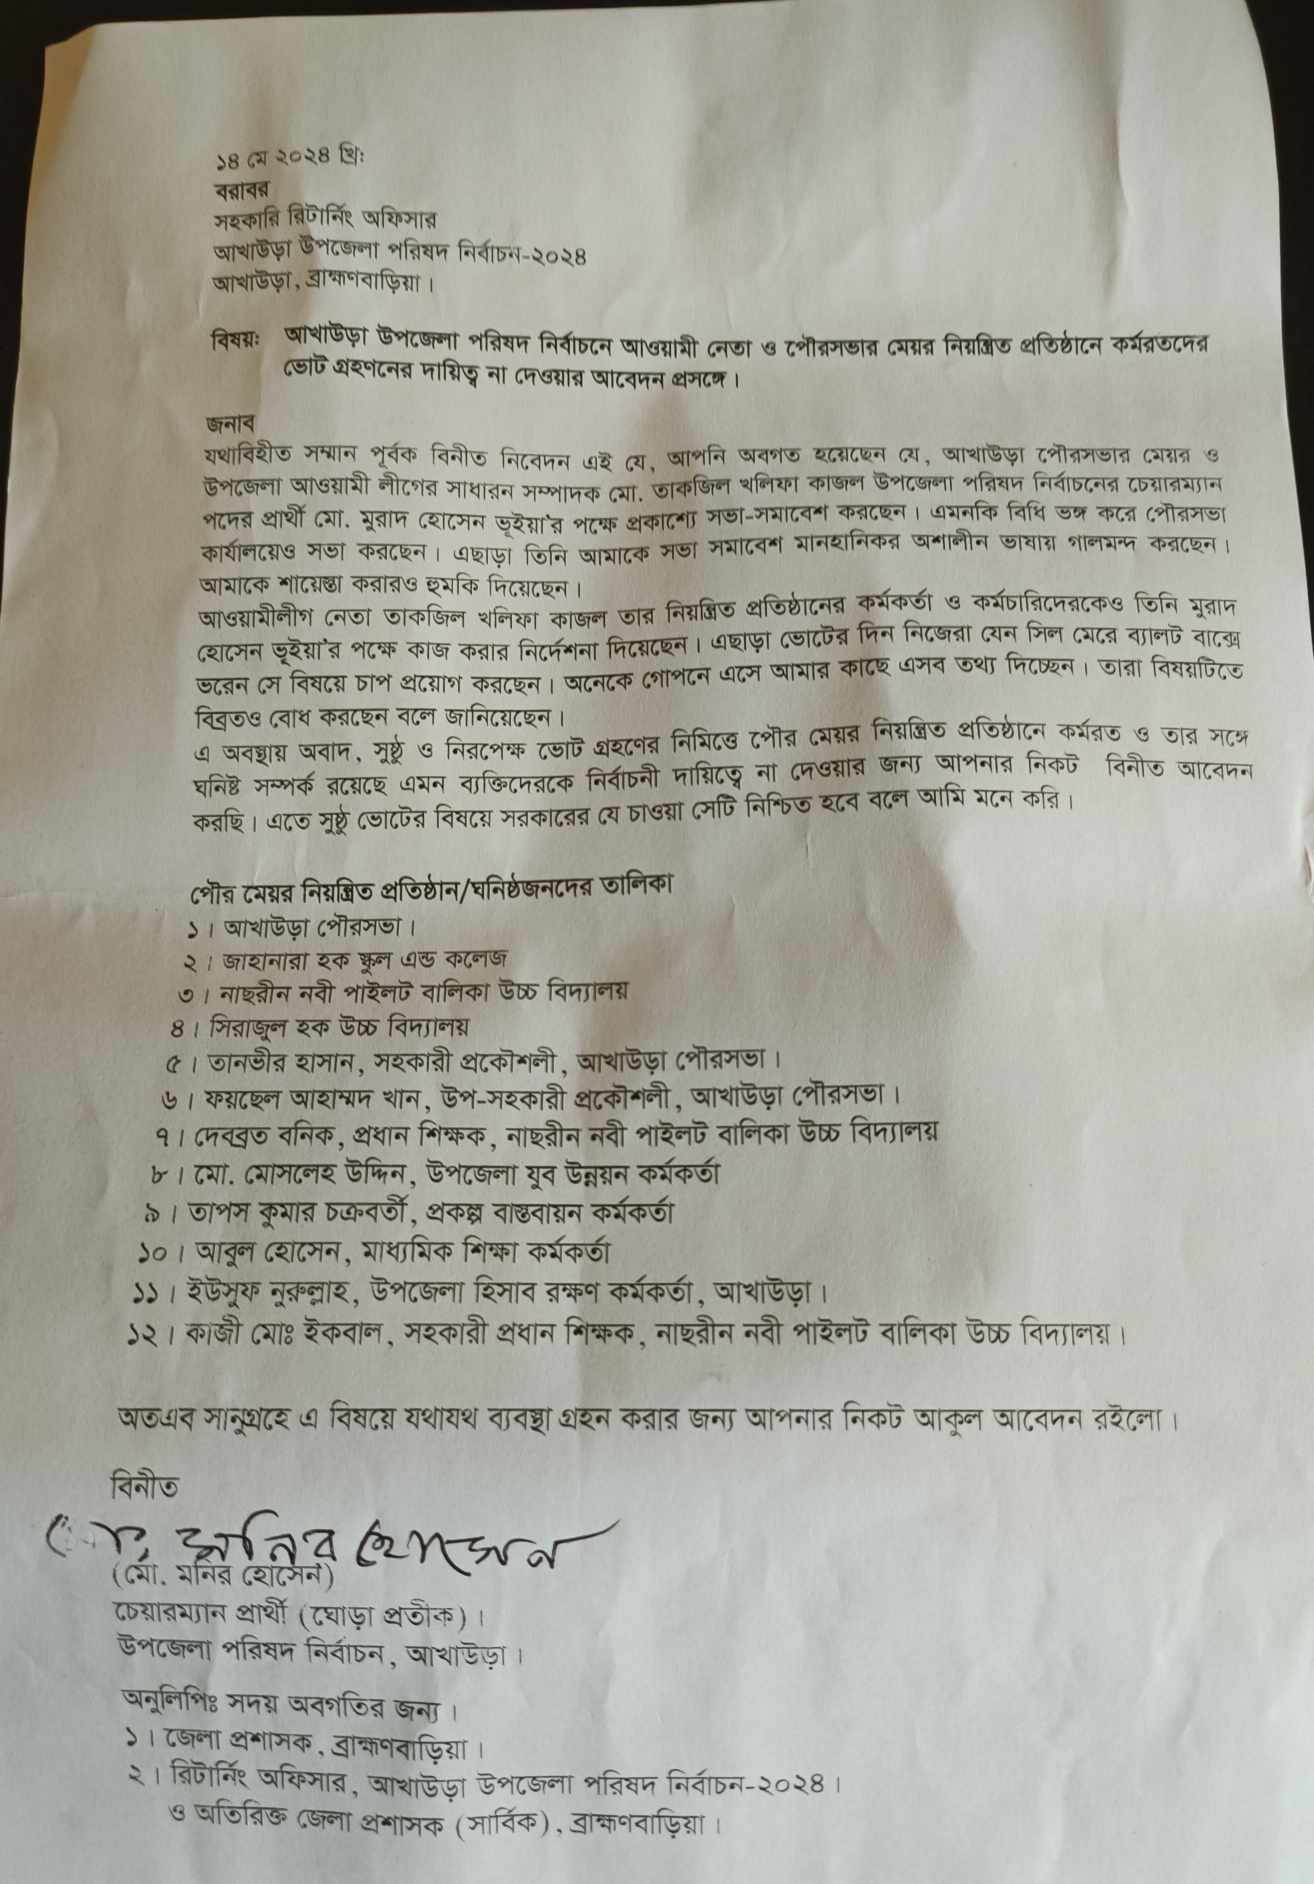 ১৪ মে ২০২৪ খ্রি:
বরাবর
সহকারি রিটার্নিং অফিসার
আখাউড়া উপজেলা পরিষদ নির্বাচন-২০২৪
আখাউড়া, ব্রাহ্মণবাড়িয়া।
বিষয়ঃ আখাউড়া উপজেলা পরিষদ নির্বাচনে আওয়ামী নেতা ও পৌরসভার মেয়র নিয়ন্ত্রিত প্রতিষ্ঠানে কর্মরতদের
ভোট গ্রহণনের দায়িত্ব না দেওয়ার আবেদন প্রসঙ্গে।
জনাব
যথাবিহীত সম্মান পূর্বক বিনীত নিবেদন এই যে, আপনি অবগত হয়েছেন যে, আখাউড়া পৌরসভার মেয়র ও
উপজেলা আওয়ামী লীগের সাধারন সম্পাদক মো. তাকজিল খলিফা কাজল উপজেলা পরিষদ নির্বাচনের চেয়ারম্যান
পদের প্রার্থী মো. মুরাদ হোসেন ভূইয়া'র পক্ষে প্রকাশ্যে সভা-সমাবেশ করছেন। এমনকি বিধি ভঙ্গ করে পৌরসভা
কার্যালয়েও সভা করছেন। এছাড়া তিনি আমাকে সভা সমাবেশ মানহানিকর অশালীন ভাষায় গালমন্দ করছেন।
আমাকে শায়েস্তা করারও হুমকি দিয়েছেন।
আওয়ামীলীগ নেতা তাকজিল খলিফা কাজল তার নিয়ন্ত্রিত প্রতিষ্ঠানের কর্মকর্তা ও কর্মচারিদেরকেও তিনি মুরাদ
হোসেন ভূইয়া'র পক্ষে কাজ করার নির্দেশনা দিয়েছেন। এছাড়া ভোটের দিন নিজেরা যেন সিল মেরে ব্যালট বাক্সে
ভরেন সে বিষয়ে চাপ প্রয়োগ করছেন। অনেকে গোপনে এসে আমার কাছে এসব তথ্য দিচ্ছেন। তারা বিষয়টিতে
বিব্রতও বোধ করছেন বলে জানিয়েছেন।
এ অবস্থায় অবাদ, সুষ্ঠু ও নিরপেক্ষ ভোট গ্রহণের নিমিত্তে পৌর মেয়র নিয়ন্ত্রিত প্রতিষ্ঠানে কর্মরত ও তার সঙ্গে
ঘনিষ্ট সম্পর্ক রয়েছে এমন ব্যক্তিদেরকে নির্বাচনী দায়িত্বে না দেওয়ার জন্য আপনার নিকট বিনীত আবেদন
করছি। এতে সুষ্ঠু ভোটের বিষয়ে সরকারের যে চাওয়া সেটি নিশ্চিত হবে বলে আমি মনে করি।
পৌর মেয়র নিয়ন্ত্রিত প্রতিষ্ঠান/ঘনিষ্ঠজনদের তালিকা
১। আখাউড়া পৌরসভা।
২। জাহানারা হক স্কুল এন্ড কলেজ
৩। নাছরীন নবী পাইলট বালিকা উচ্চ বিদ্যালয়
৪। সিরাজুল হক উচ্চ বিদ্যালয়
৫। তানভীর হাসান, সহকারী প্রকৌশলী, আখাউড়া পৌরসভা।
৬। ফয়ছেল আহাম্মদ খান, উপ-সহকারী প্রকৌশলী, আখাউড়া পৌরসভা।
৭। দেবব্রত বনিক, প্রধান শিক্ষক, নাছরীন নবী পাইলট বালিকা উচ্চ বিদ্যালয়
৮। মো. মোসলেহ উদ্দিন, উপজেলা যুব উন্নয়ন কর্মকর্তা
৯। তাপস কুমার চক্রবর্তী, প্রকল্প বাস্তবায়ন কর্মকর্তা
১০। আবুল হোসেন, মাধ্যমিক শিক্ষা কর্মকর্তা
১১। ইউসুফ নুরুল্লাহ, উপজেলা হিসাব রক্ষণ কর্মকর্তা, আখাউড়া।
১২। কাজী মোঃ ইকবাল, সহকারী প্রধান শিক্ষক, নাছরীন নবী পাইলট বালিকা উচ্চ বিদ্যালয়।
অতএব সানুগ্রহে এ বিষয়ে যথাযথ ব্যবস্থা গ্রহন করার জন্য আপনার নিকট আকুল আবেদন রইলো।
বিনীত
মো: মনির হোসেন
(মো. মনির হোসেন)
চেয়ারম্যান প্রার্থী (ঘোড়া প্রতীক)।
উপজেলা পরিষদ নির্বাচন, আখাউড়া।
অনুলিপিঃ সদয় অবগতির জন্য।
১। জেলা প্রশাসক, ব্রাহ্মণবাড়িয়া।
২। রিটার্নিং অফিসার, আখাউড়া উপজেলা পরিষদ নির্বাচন-২০২৪।
ও অতিরিক্ত জেলা প্রশাসক (সার্বিক), ব্রাহ্মণবাড়িয়া।